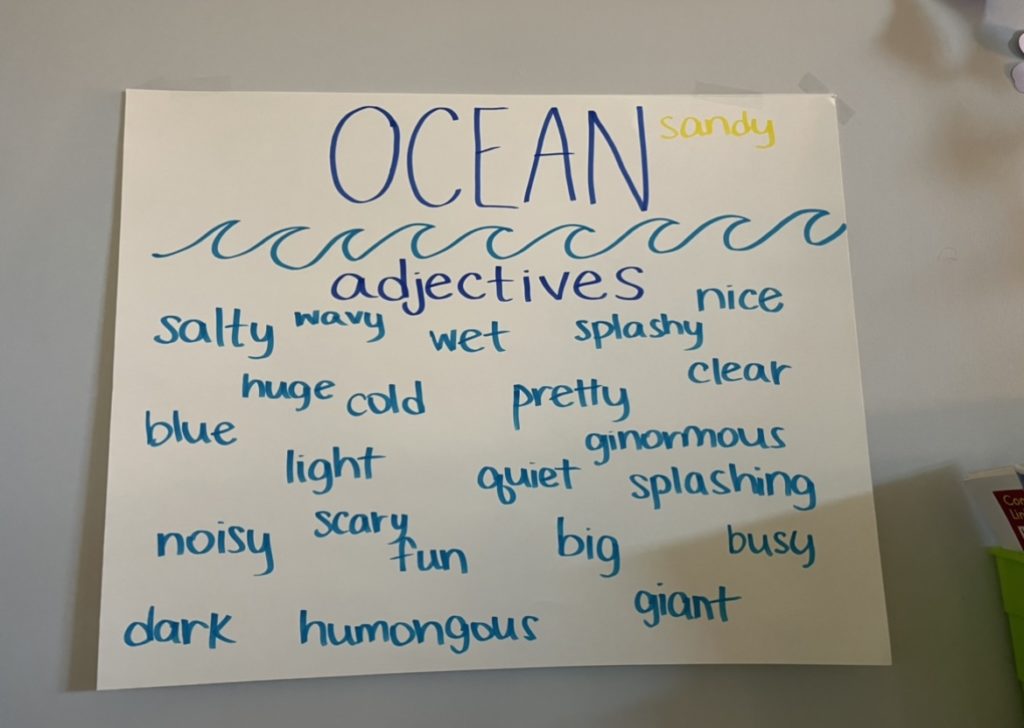 OCEAN sandy
adjectives
nice
salty wavy wet splashy
clear
huge cold pretty
blue
ginormous
light quiet splashing
scary
noisy fun big busy
giant
dark humongous